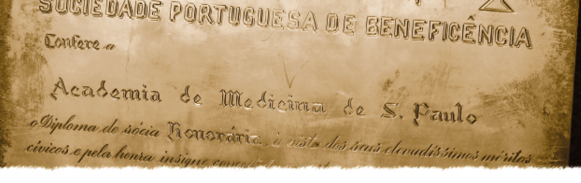 SOCIEDADE PORTUGUESA DE BENEFICÊNCIA
Confere a
Academia de Medicina de S. Paulo
o Diploma de sócia Honorária, á vista dos seus elevadissimos méritos
civicos e pela honra insigne